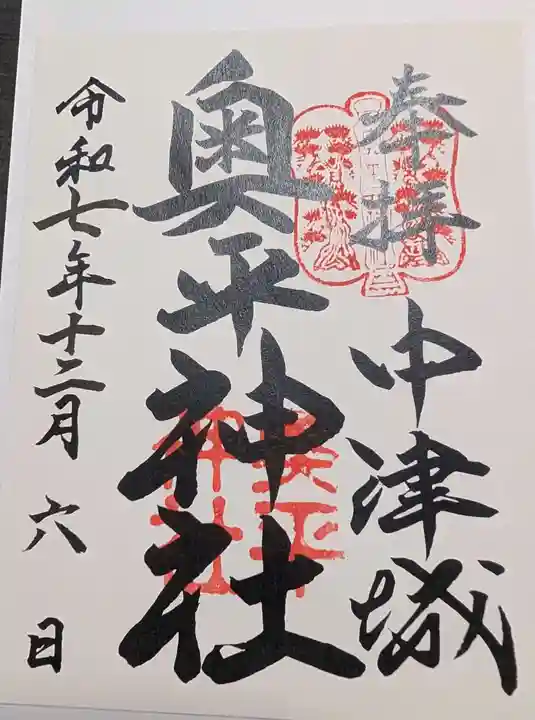 奉拝
中津城
奥平神社
奥平
神社
令和七年十二月六日